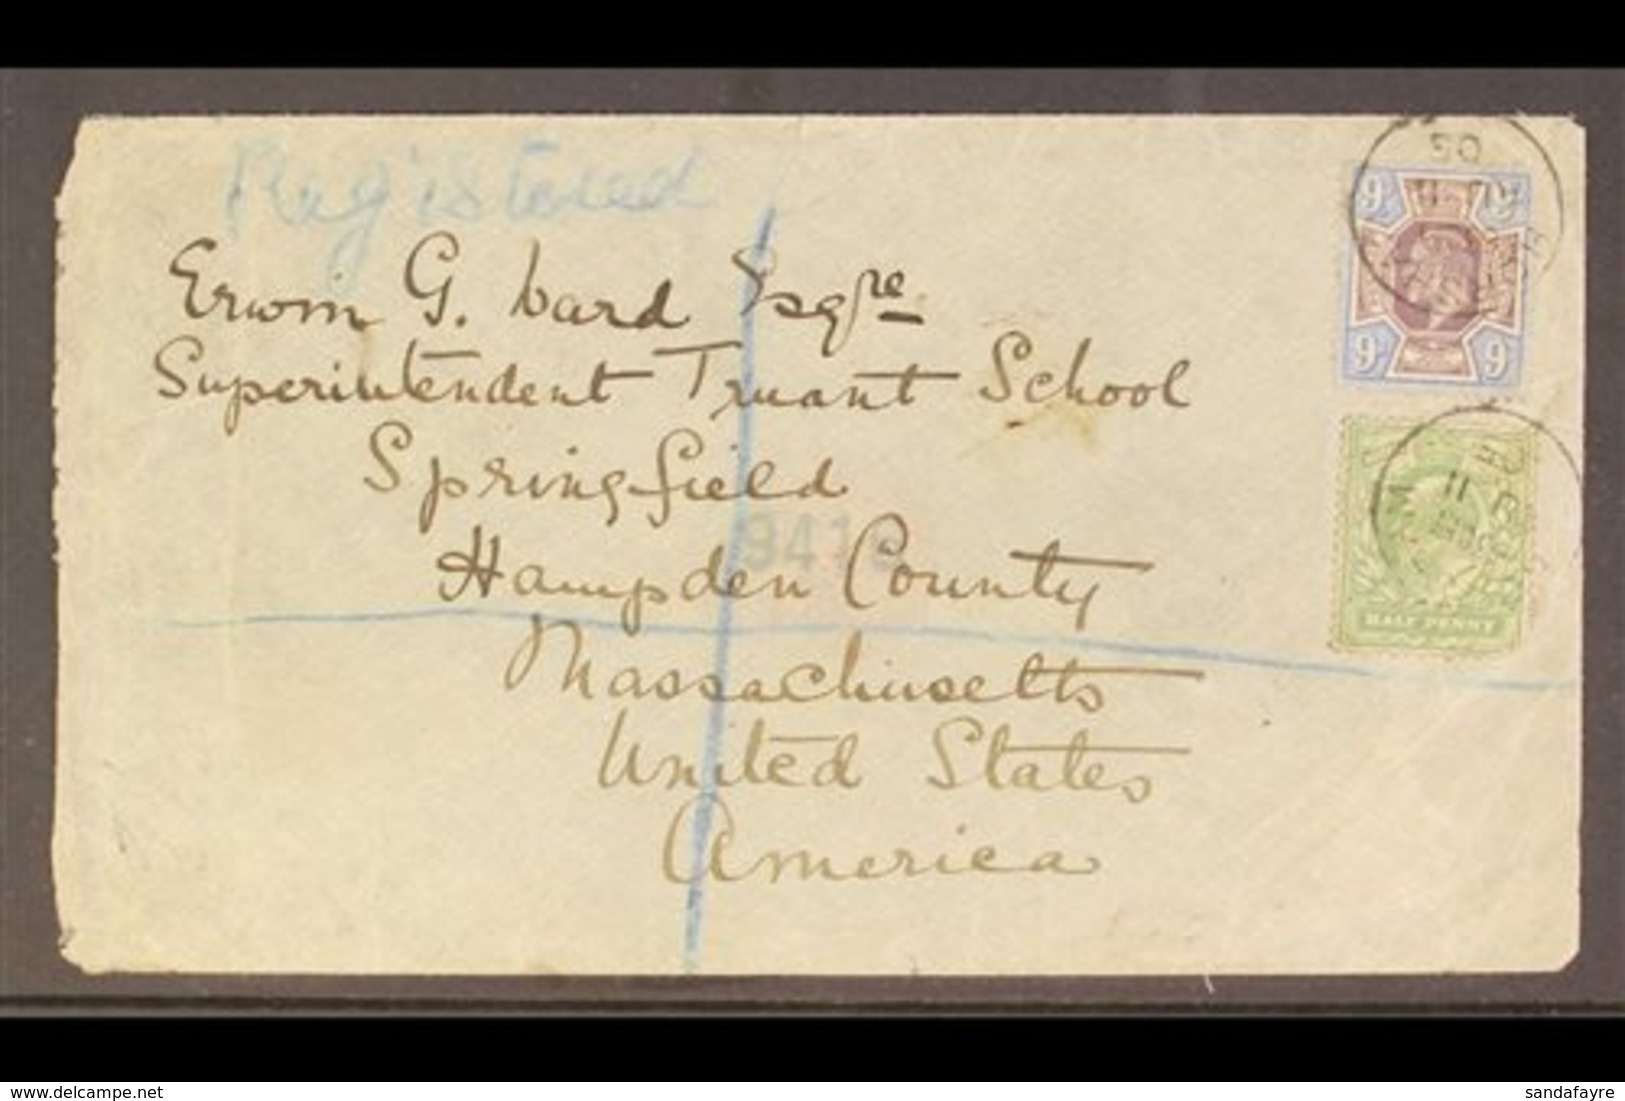 Registered
Erwin G. Ward Esqre
Superintendent Truant School
Springfield
941
Hampden County
Massachusetts
United States
America
9 9
9 9
05
11
HALF PENNY
www.delcampe.net
sandafayre